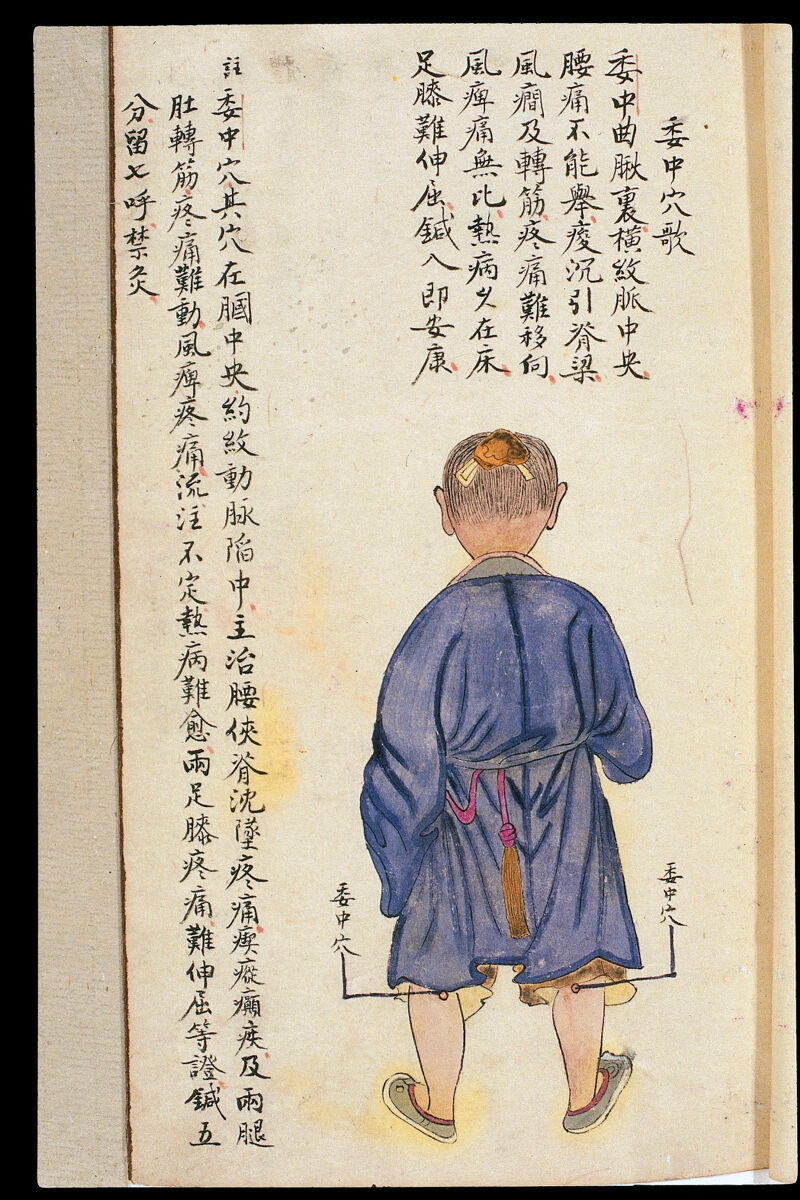 委中穴歌
委中曲脷裏橫紋脈中央
腰痛不能舉痠沉引脊梁
風癎及轉筋疼痛難移向
風痺痛無比熱病久在床
足膝難伸屈鍼入即安康
註委中穴其穴在膕中央約紋動脉陷中主治腰俠脊沈墜疼痛瘈瘲癲疾及兩腿
肚轉筋疼痛難動風痺疼痛流注不定熱病難愈兩足膝疼痛難伸屈等證鍼五
分留七呼禁灸
委中穴
委中穴